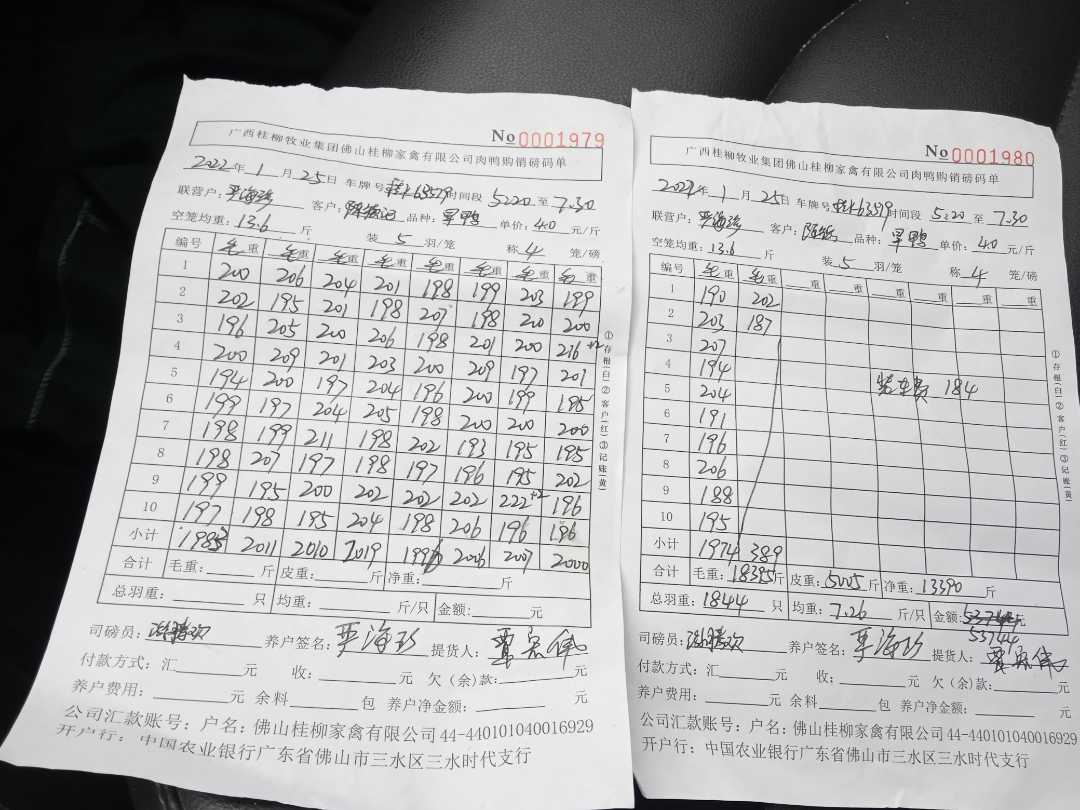 No 0001979
广西桂柳牧业集团佛山桂柳家禽有限公司肉鸭购销磅码单
2022年 1 月 25日 车牌号 63579 时间段 5:20 至 7:30
联营户: 严海珍 客户: 品种: 单价: 4.0 元/斤
空笼均重: 13.6 斤 装 5 羽/笼 称 4 笼/磅
编号 毛重 毛重 毛重 毛重 毛重 毛重 毛重 毛重
1 200 206 204 201 198 199 203 199
2 202 195 201 198 207 198 200 200
3 196 205 200 206 198 201 200 216 +2
4 200 209 201 203 200 209 197 201
5 194 200 197 204 196 200 199 195
6 199 197 204 205 198 200 200 200
7 198 199 211 198 202 193 195 195
8 198 207 197 198 197 196 195 202
9 199 195 200 202 202 202 222 +2 196
10 197 198 195 204 198 206 196 196
小计 1983 2011 2010 2019 1996 2006 2007 2000
合计 毛重: 斤 皮重: 斤 净重: 斤
总羽重: 只 均重: 斤/只 金额: 元
①存根(白)②客户(红)③记账(黄)
司磅员: 养户签名: 严海珍 提货人:
付款方式: 汇 元 收: 元 欠(余)款: 元
养户费用: 元 余料 包 养户净金额: 元
公司汇款账号: 户名: 佛山桂柳家禽有限公司 44-440101040016929
开户行: 中国农业银行广东省佛山市三水区三水时代支行
No 0001980
广西桂柳牧业集团佛山桂柳家禽有限公司肉鸭购销磅码单
2022年 1 月 25日 车牌号 63579 时间段 5:20 至 7:30
联营户: 严海珍 客户: 品种: 单价: 4.0 元/斤
空笼均重: 13.6 斤 装 5 羽/笼 称 4 笼/磅
编号 毛重 毛重 重 重 重 重 重 重
1 190 202
2 203 187
3 207
4 194
5 204 装车费 184
6 191
7 196
8 206
9 188
10 195
小计 1974 389
合计 毛重: 18395斤 皮重: 5005斤 净重: 13390 斤
总羽重: 1844 只 均重: 7.26 斤/只 金额: 元
53744
①存根(白)②客户(红)③记账(黄)
司磅员: 养户签名: 严海珍 提货人:
付款方式: 汇 元 收: 元 欠(余)款: 元
养户费用: 元 余料 包 养户净金额: 元
公司汇款账号: 户名: 佛山桂柳家禽有限公司 44-440101040016929
开户行: 中国农业银行广东省佛山市三水区三水时代支行